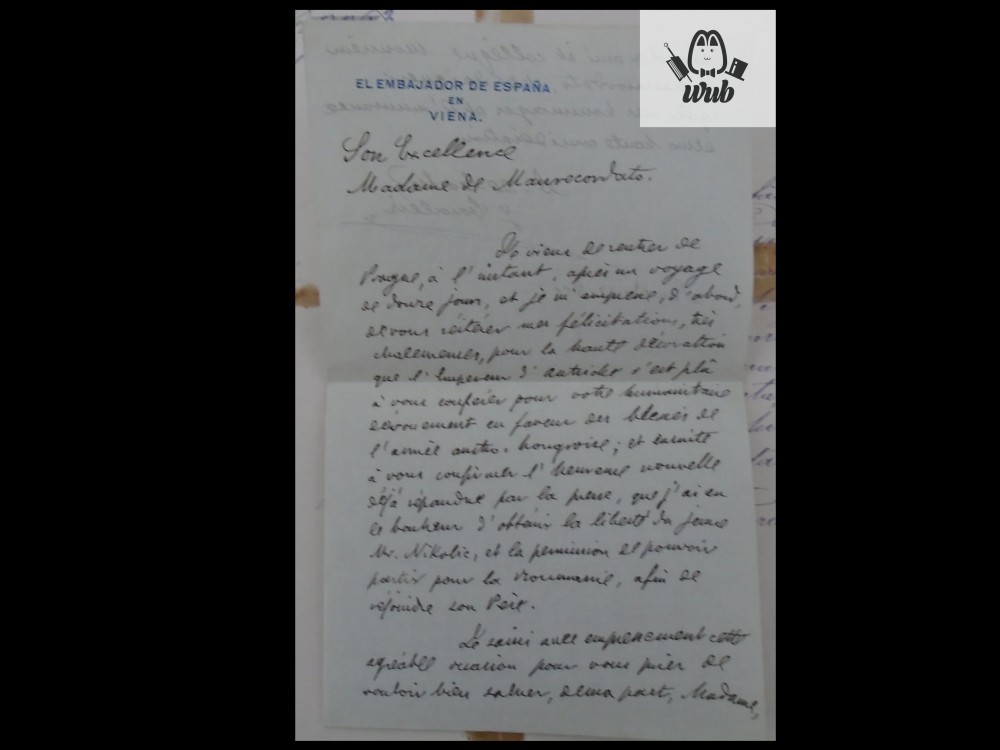 wub
EL EMBAJADOR DE ESPAÑA
EN
VIENA.
Son Excellence
Madame de Maurocordato.
Je viens de rentrer de
Prague, à l'instant, après un voyage
de douze jours, et je m'empresse, d'abord,
de vous réitérer mes félicitations, très
chaleureuses, pour la haute décoration
que l'Empereur d'Autriche s'est plû
à vous conférer pour votre humanitaire
dévouement en faveur des blessés de
l'armée austro-hongroise; et ensuite
à vous confirmer l'heureuse nouvelle
déjà répandue par la presse, que j'ai eu
le bonheur d'obtenir la liberté du jeune
Mr. Nikolic, et la permission de pouvoir
partir pour la Roumanie, afin de
rejoindre son Père.
Je saisis avec empressement cette
agréable occasion pour vous prier de
vouloir bien saluer, de ma part, Madame,